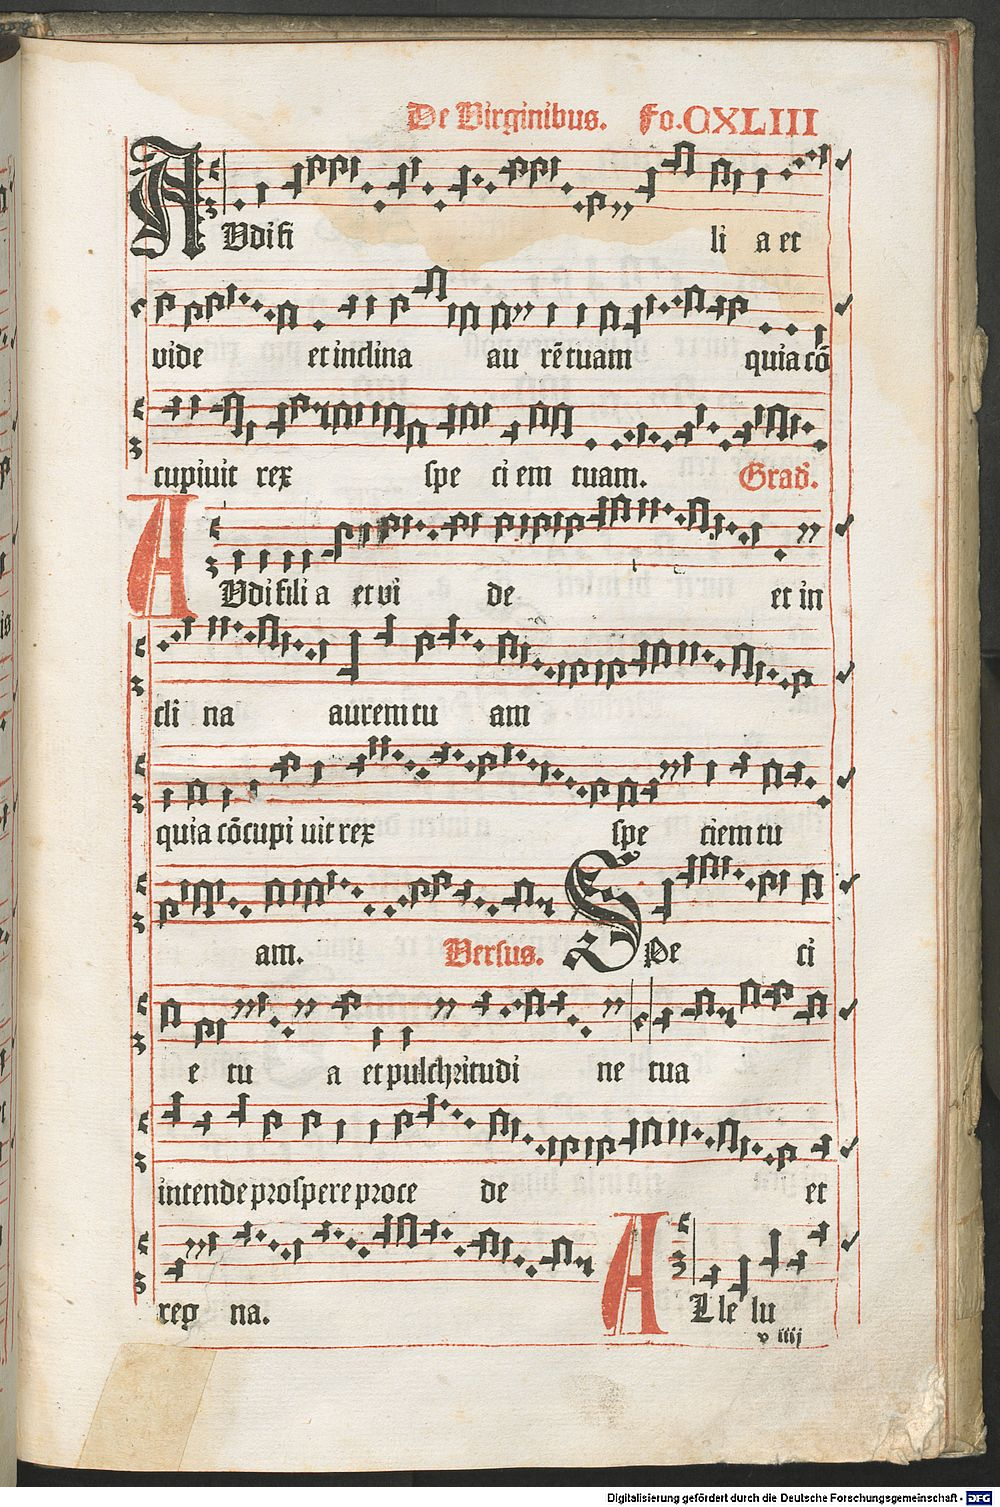 De Virginibus. Fo. CXLIII
AVdi fi li a et
vide et inclina au rē tuam quia cō
cupiuit rex spe ci em tuam. Grad.
AVdi fili a et vi de et in
cli na aurem tu am
quia cōcupi uit rex spe ciem tu
am. Versus. SPe ci
e tu a et pulchritudi ne tua
intende prospere proce de et
reg na. ALle lu
v iiij
Digitalisierung gefördert durch die Deutsche Forschungsgemeinschaft - DFG